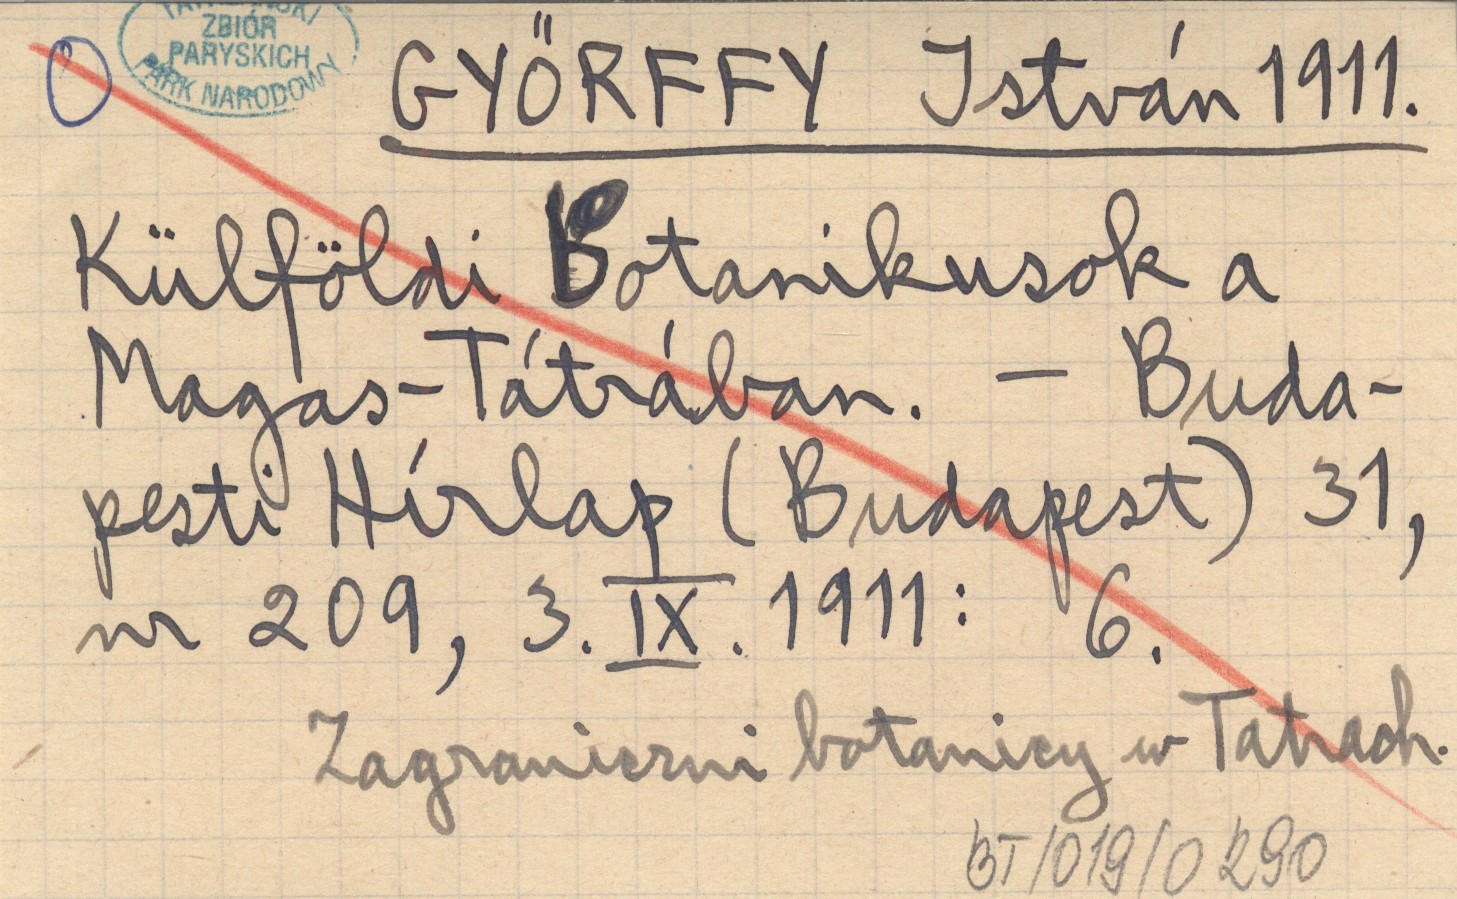 ZBIÓR
PARYSKICH
PARK NARODOWY
GYŐRFFY István 1911.
Külföldi Botanikusok a
Magas-Tátrában. — Buda-
pesti Hírlap (Budapest) 31,
nr 209, 3. IX. 1911: 6.
Zagraniczni botanicy w Tatrach.
BT/019/0290